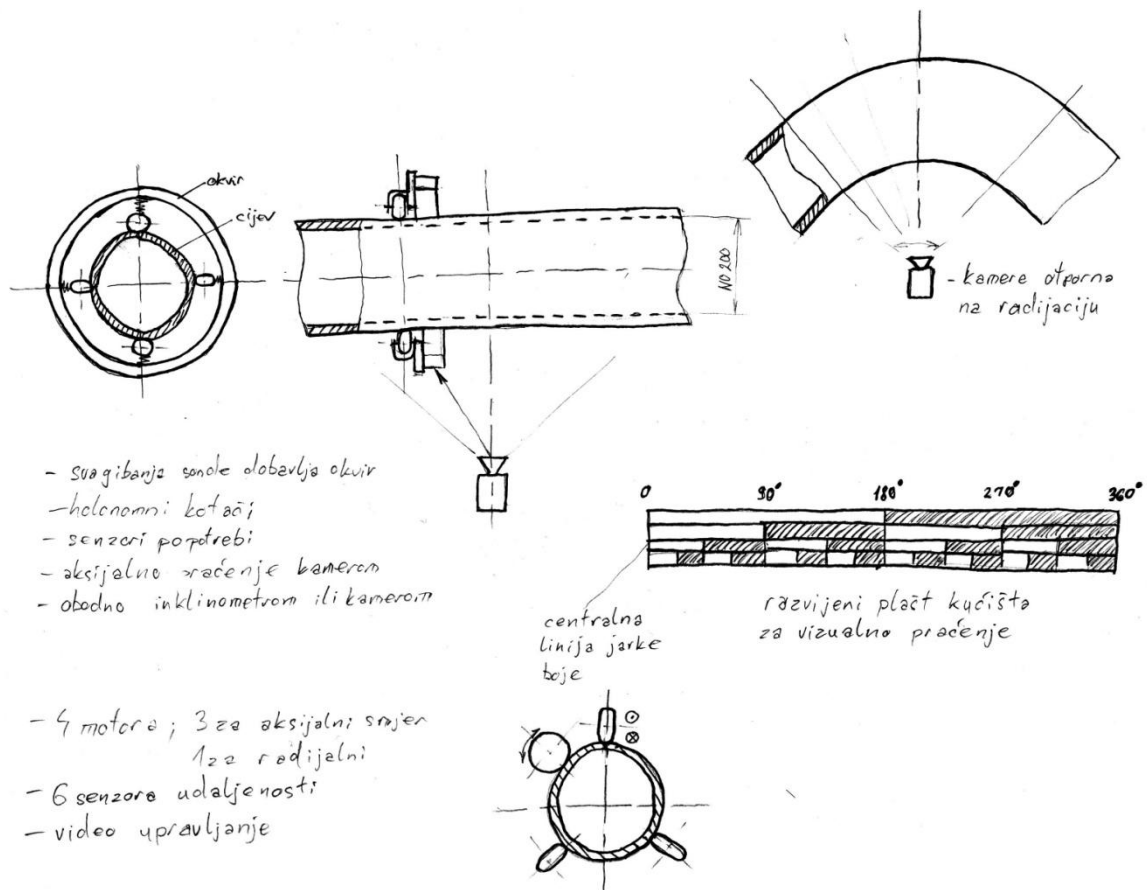 okvir
cijev
NO 200
- kamere otporna
na radijaciju
- svagibanja sonde dobavlja okvir
- holonomni kotači
- senzori po potrebi
- aksijalno praćenje kamerom
- obodno inklinometrom ili kamerom
0 90° 180° 270° 360°
centralna
linija jarke
boje
razvijeni plašt kućišta
za vizualno praćenje
- 4 motora ; 3 za aksijalni smjer
1 za radijalni
- 6 senzora udaljenosti
- video upravljanje